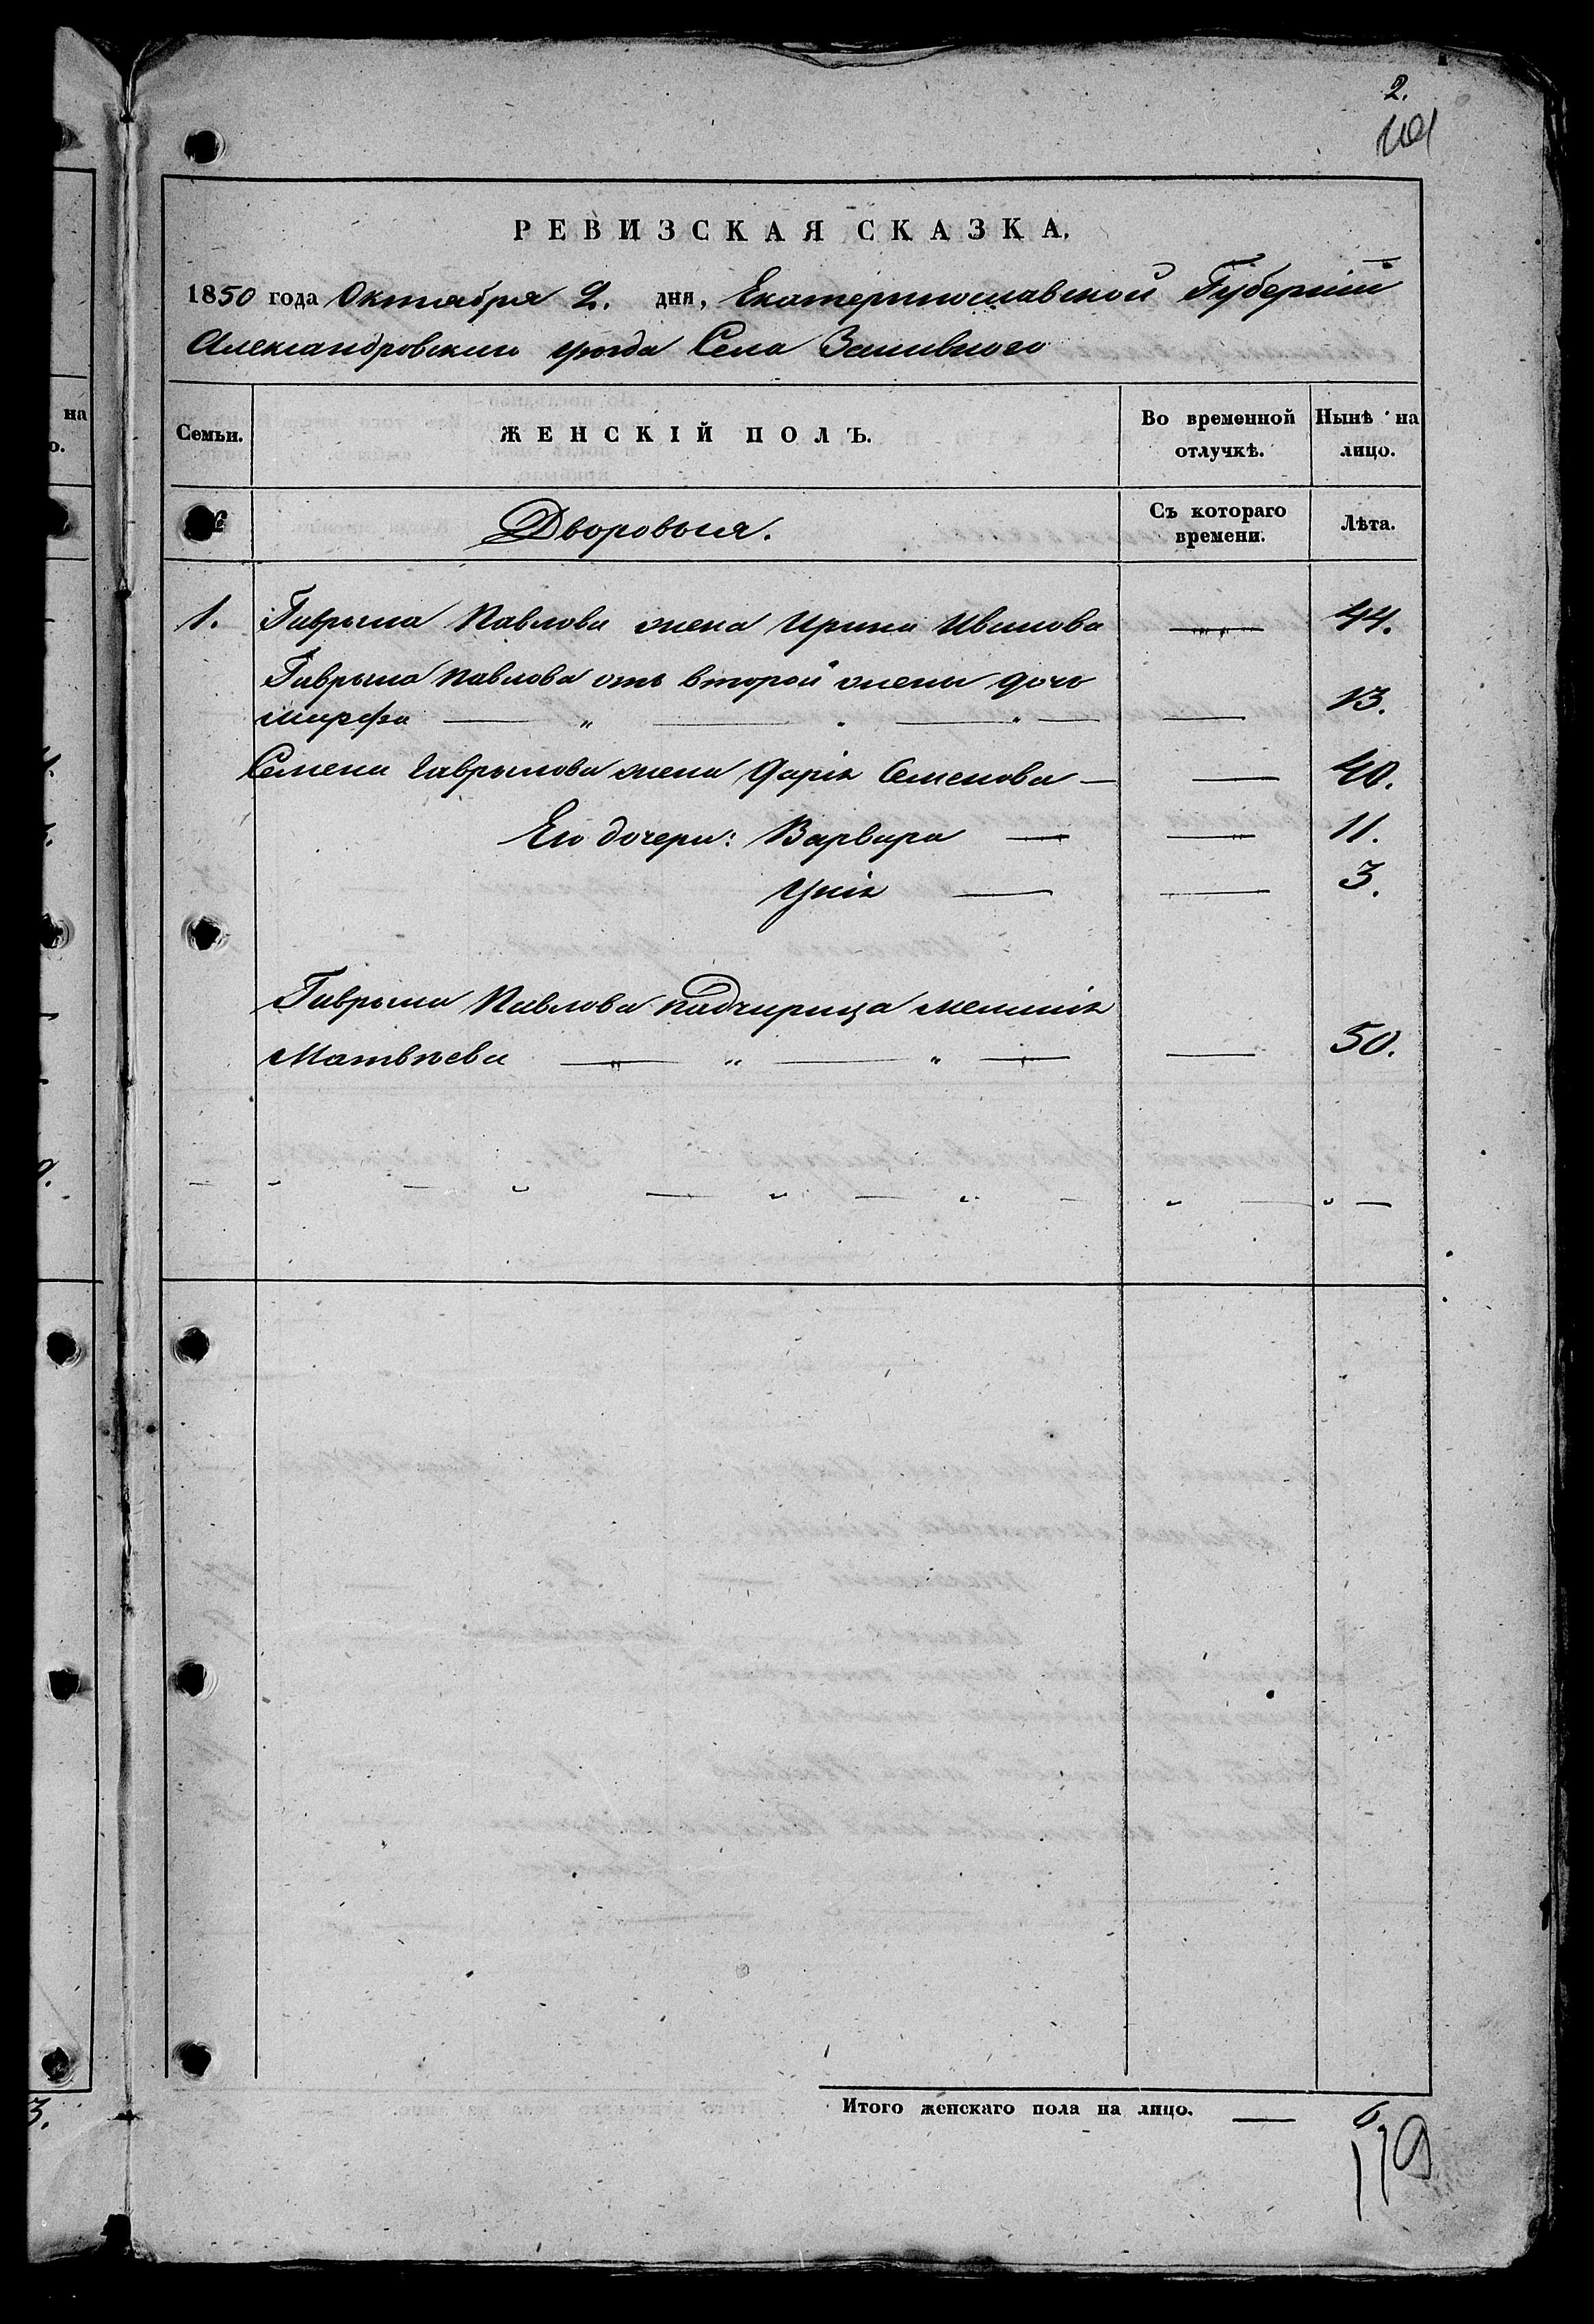 2.
РЕВИЗСКАЯ СКАЗКА.
1850 года Октября 2. дня, Екатеринославской Губерніи
Александровскаго уѣзда Села Заливнаго
на
о.
Семьи.
ЖЕНСКІЙ ПОЛЪ.
Во временной отлучкѣ.
Нынѣ на лицо.
Дворовыя.
Съ котораго времени.
Лѣта.
1. Гаврыла Павлова жена Ирина Иванова — 44.
Гаврыла Павлова отъ второй жены дочь
Марфа — " — " — " — — 13.
Семена Гаврылова жена Дарія Семенова — — 40.
Его дочери: Варвара — — 11.
Улія — — 3.
Гаврыла Павлова падчирица Меланія
Матвѣева — " — " — — 50.
3.
Итого женскаго пола на лицо. — 6
179